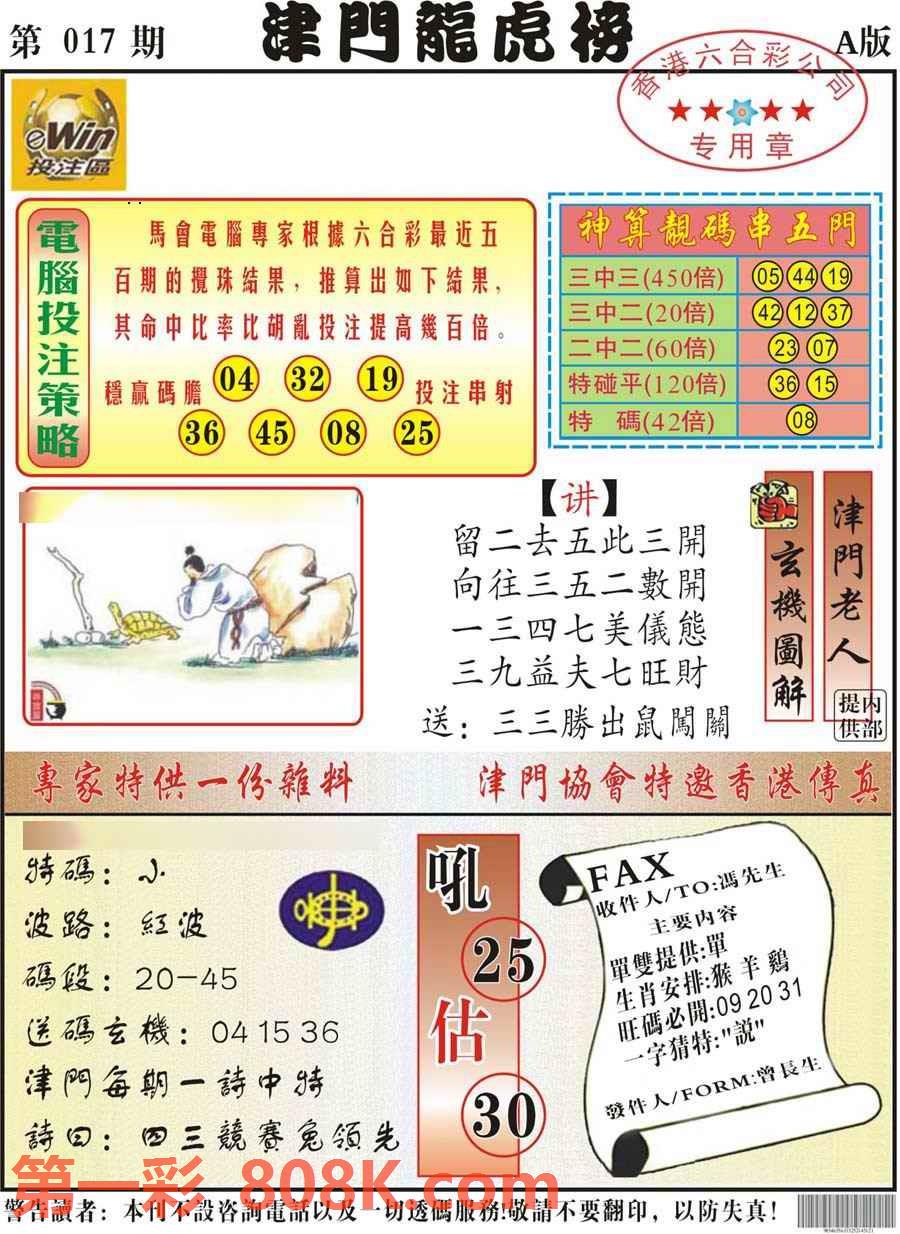 第 017 期
津門龍虎榜
A版
香港六合彩公司
专用章
eWin
投注區
電腦投注策略
馬會電腦專家根據六合彩最近五
百期的攪珠結果，推算出如下結果，
其命中比率比胡亂投注提高幾百倍。
穩贏碼膽 04 32 19 投注串射
36 45 08 25
神算靚碼串五門
三中三(450倍) 05 44 19
三中二(20倍) 42 12 37
二中二(60倍) 23 07
特碰平(120倍) 36 15
特 碼(42倍) 08
【讲】
留二去五此三開
向往三五二數開
一三四七美儀態
三九益夫七旺財
送：三三勝出鼠闖關
玄機圖解
津門老人
提供
内部
專家特供一份雜料
津門協會特邀香港傳真
特碼：小
波路：紅波
碼段：20-45
送碼玄機：04 15 36
津門每期一詩中特
詩曰：四三競賽兔領先
吼
25
估
30
FAX
收件人/TO:馮先生
主要内容
單雙提供:單
生肖安排:猴 羊 鷄
旺碼必開:09 20 31
一字猜特:"説"
發件人/FORM:曾長生
第一彩 808K.com
警告讀者：本刊不設咨詢電話以及一切透碼服務!敬請不要翻印，以防失真!